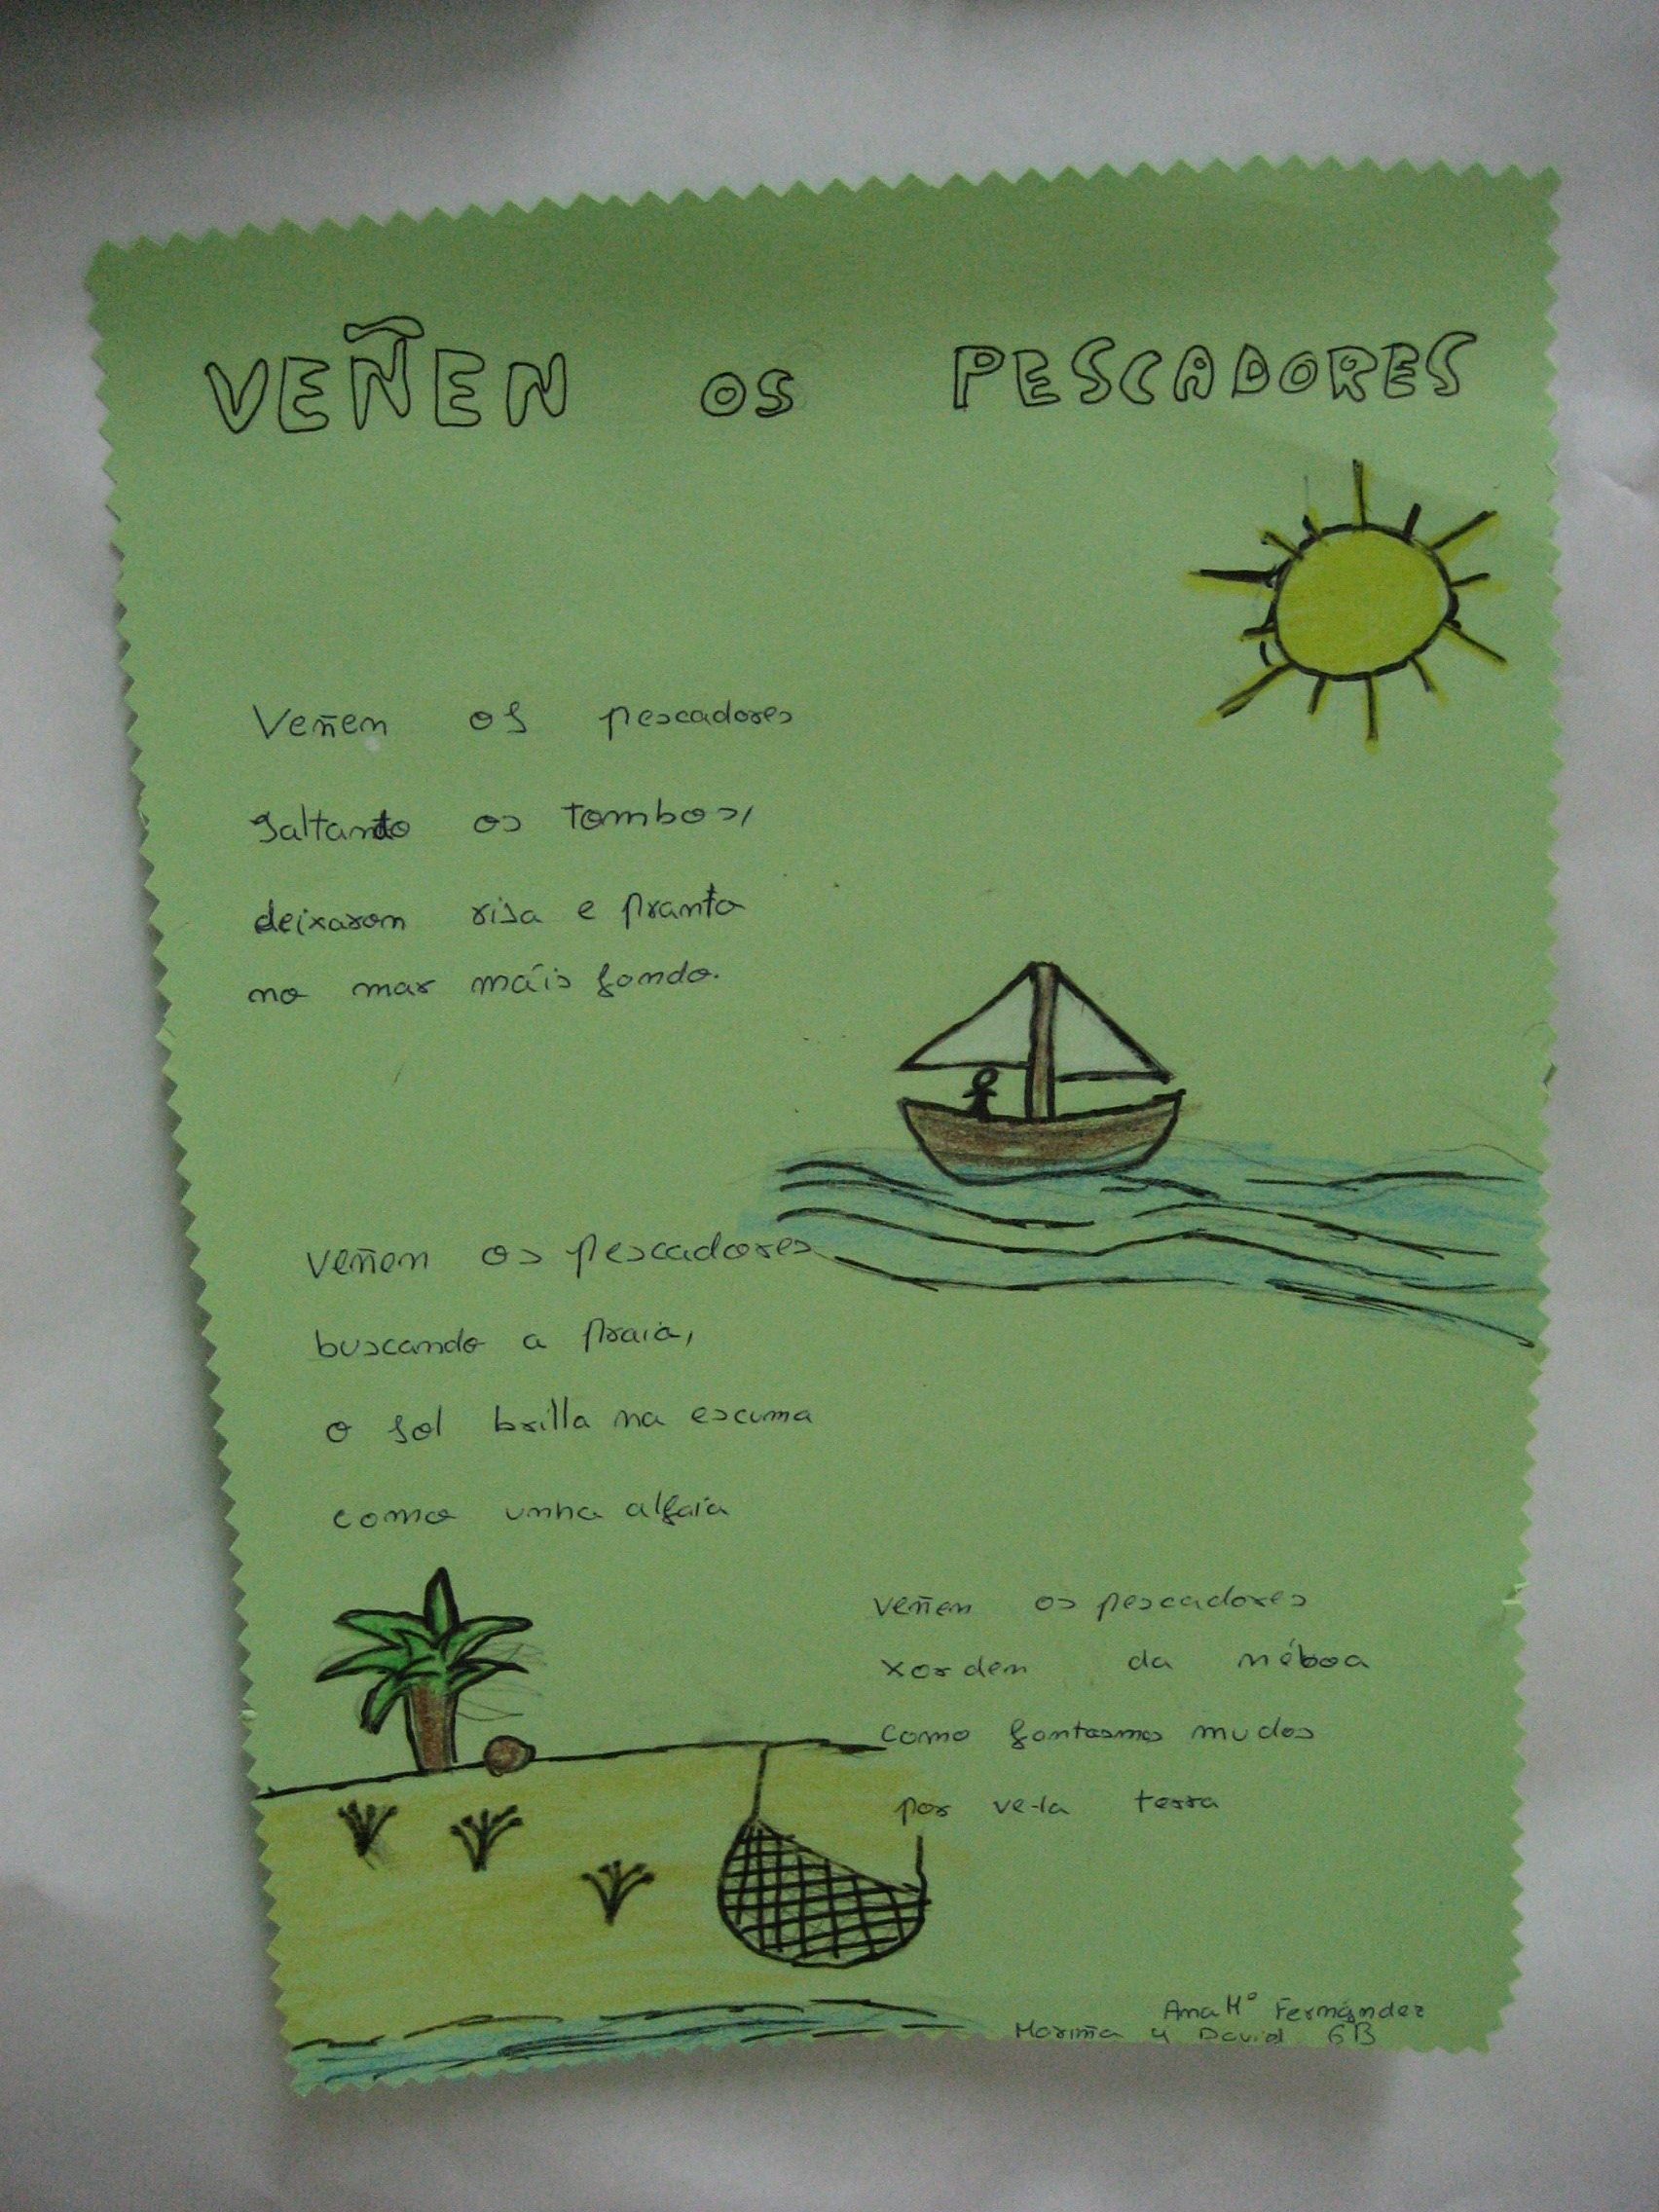 VEÑEN OS PESCADORES
Veñen os pescadores
saltando os tombos,
deixaron risa e pranto
no mar máis fondo.
Veñen os pescadores
buscando a praia,
o sol brilla na escuma
como unha alfaia
Veñen os pescadores
xorden da néboa
como fantasmas mudos
por ve-la terra
Ana Mª Fernández
Mariña y David 6B